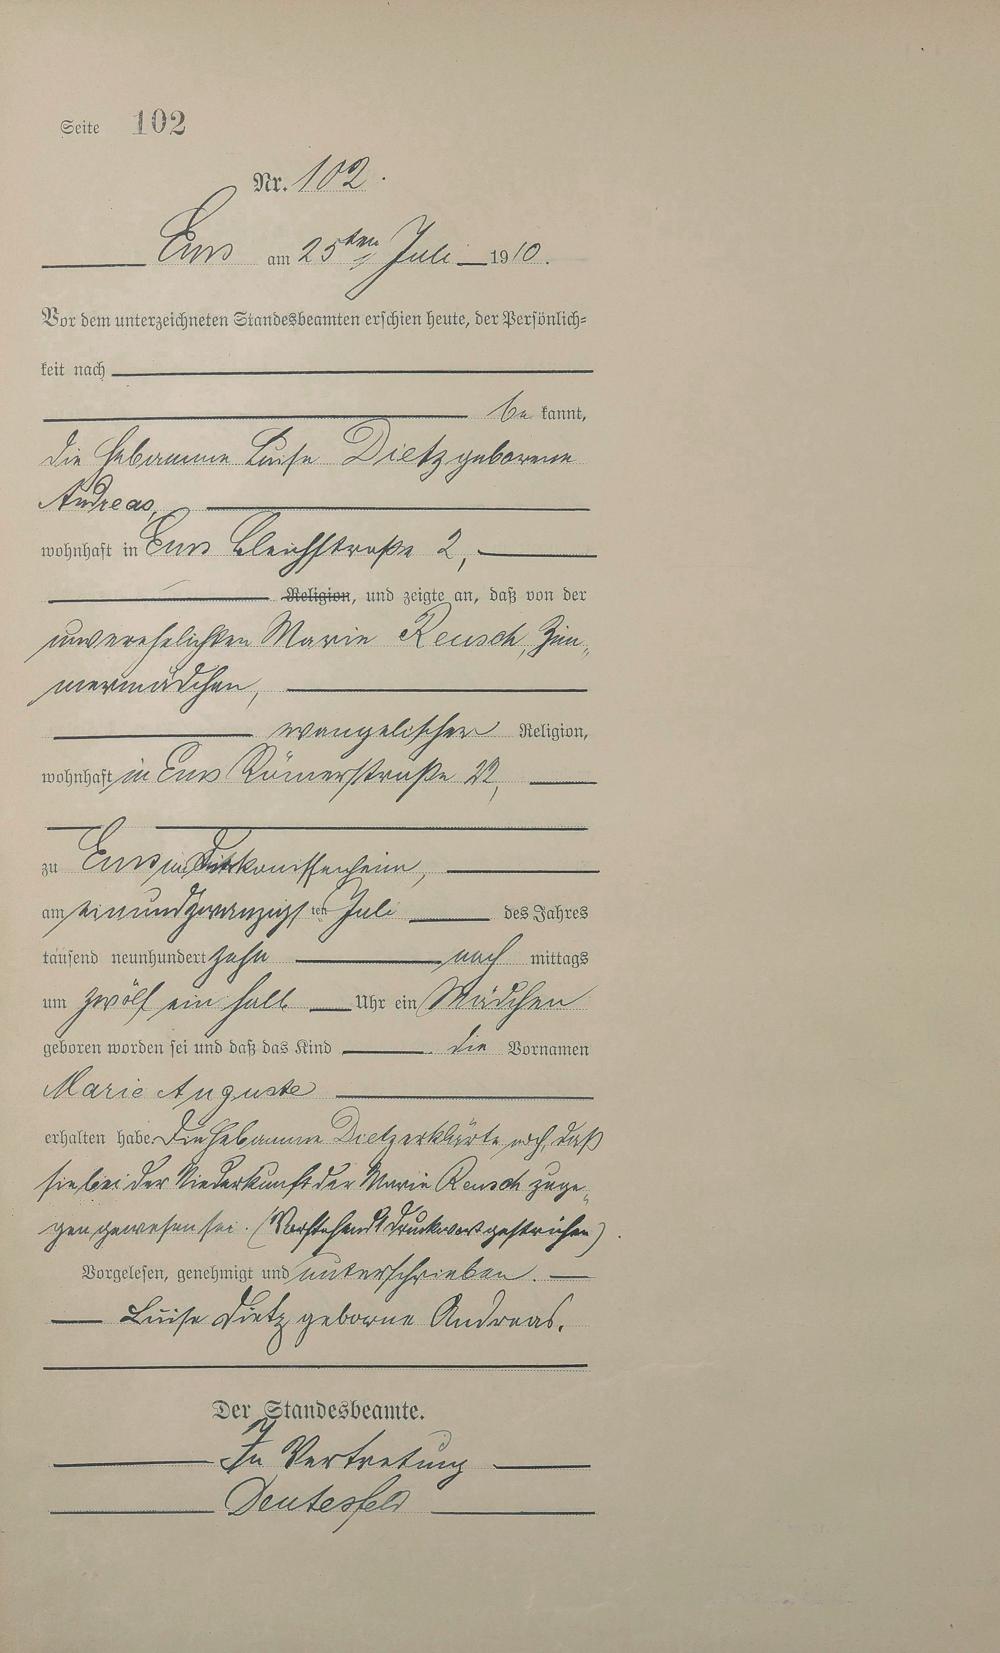 Seite 102
Nr. 102.
Ems am 25ten Juli 1910.
Vor dem unterzeichneten Standesbeamten erschien heute, der Persönlich=
keit nach
be kannt,
die Hebamme Luise Dietz geborene
Andreas,
wohnhaft in Ems Bleichstraße 2,
Religion, und zeigte an, daß von der
unverehelichten Marie Reusch, Zim„
mermädchen,
evangelischer Religion,
wohnhaft in Ems Römerstraße 22,
zu Ems im Diakonissenheim,
am einundzwanzigsten Juli des Jahres
tausend neunhundert zehn nach mittags
um zwölf ein halb Uhr ein Mädchen
geboren worden sei und daß das Kind die Vornamen
Marie Auguste
erhalten habe. Die Hebamme Dietz erklärte noch, daß
sie bei der Niederkunft der Marie Reusch zuge„
gen gewesen sei. (Vorstehend 1 Druckwort gestrichen)
Vorgelesen, genehmigt und unterschrieben.
Luise Dietz geborne Andreas.
Der Standesbeamte.
In Vertretung
Deutesfeld